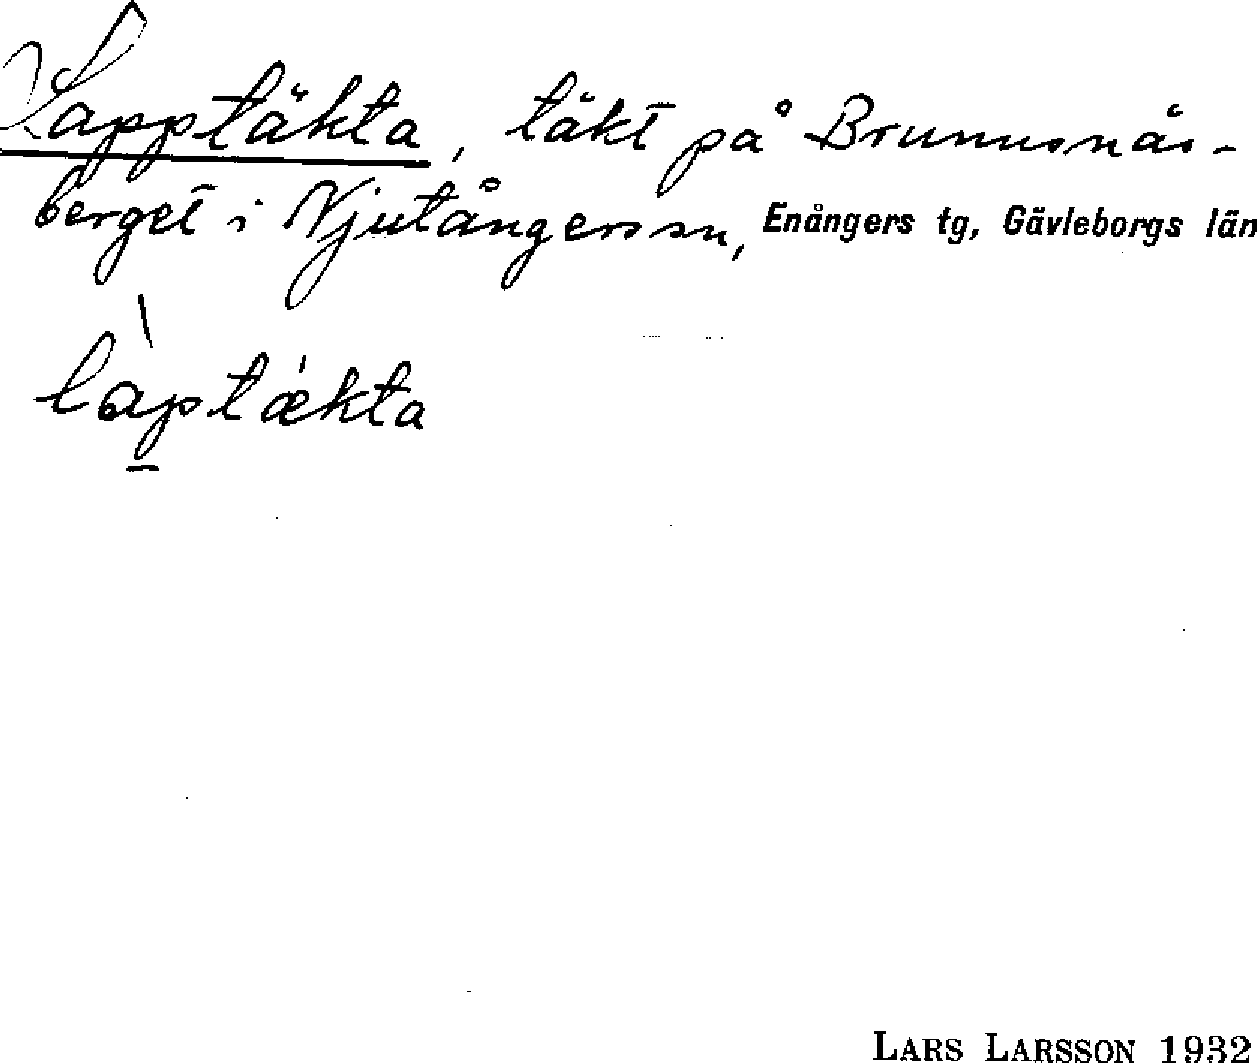 Lapptäkta, täkt på Brunnsnäs-
berget i Njutångers sn, Enångers tg, Gävleborgs län
làptǽkta
LARS LARSSON 1932